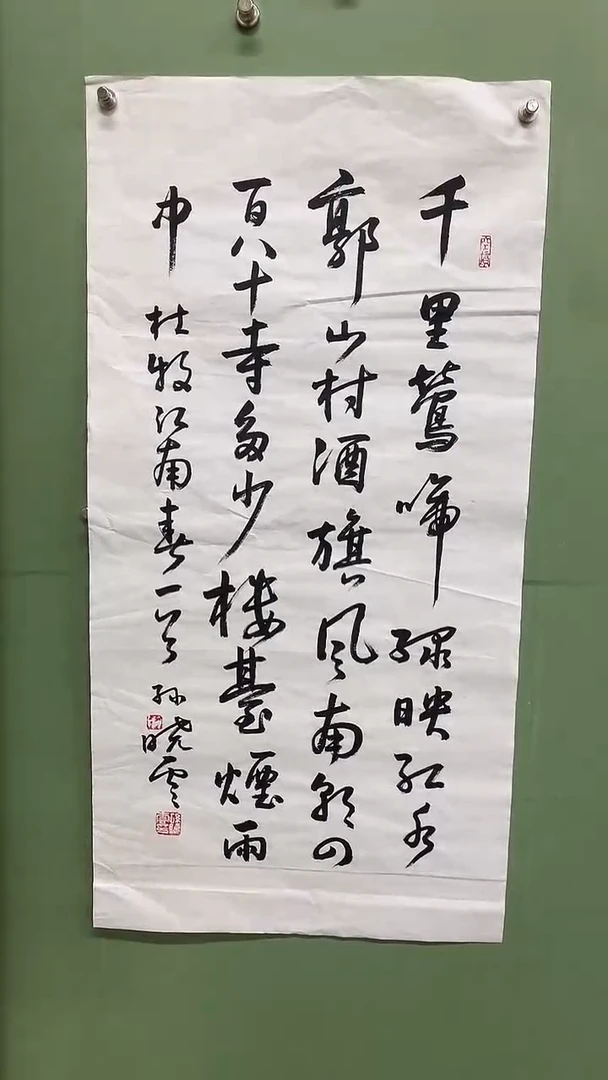 千里鶯啼绿映红水
郭山村酒旗风南朝四
百八十寺多少楼臺煙雨
中 杜牧江南春一首 孙晓雲